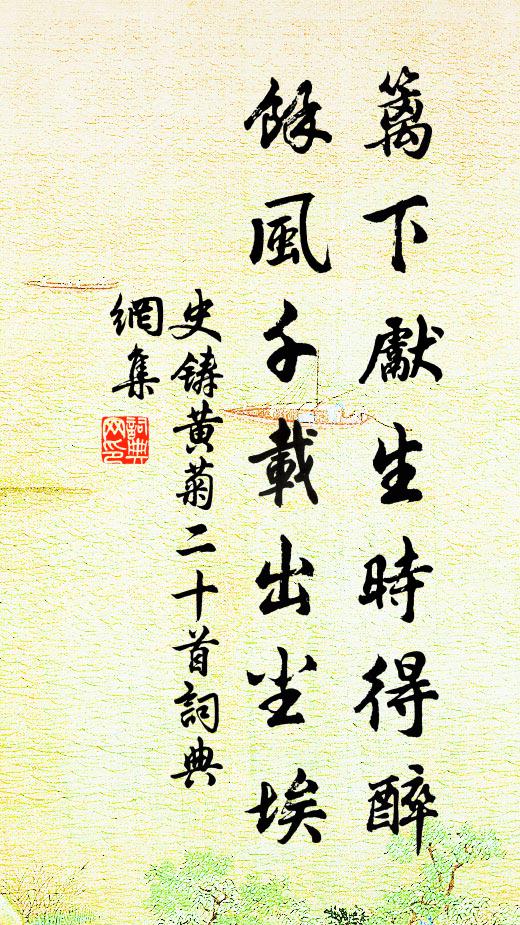 籬下獻生時得醉
餘風千載出尘埃
史鑄黃菊二十首詞典
網集
詞典
网印